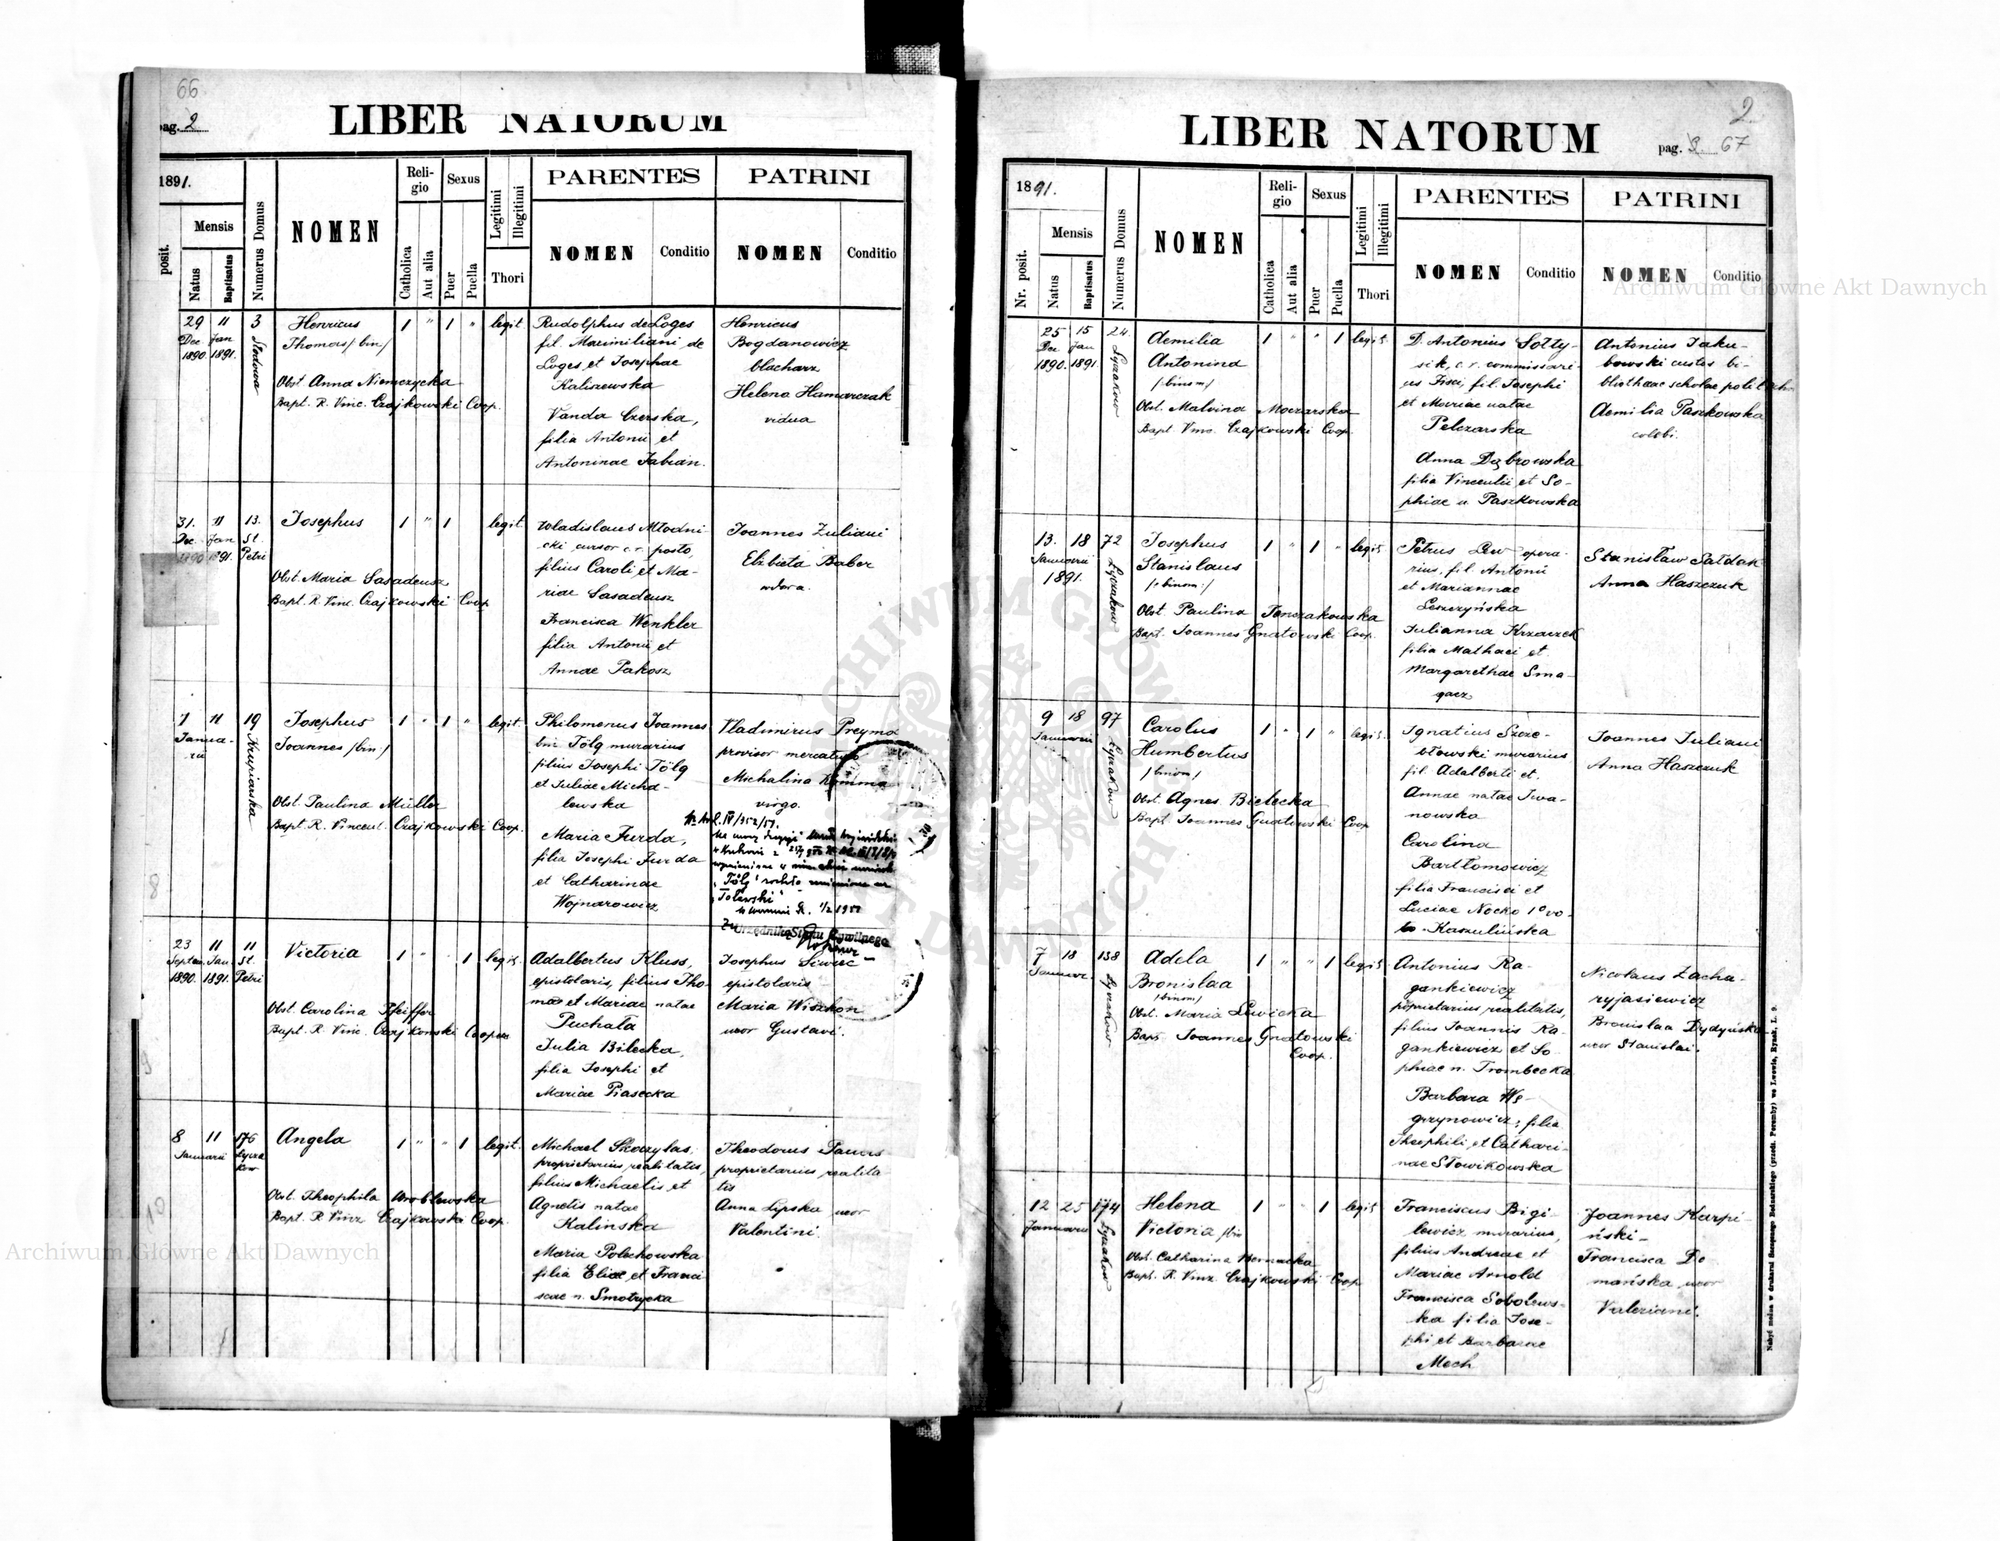 66
pag. 2
LIBER NATORUM
1891.
posit.
Mensis
Natus
Baptisatus
Numerus Domus
NOMEN
Reli-
gio
Catholica
Aut alia
Sexus
Puer
Puella
Legitimi
Illegitimi
Thori
PARENTES
NOMEN
Conditio
PATRINI
NOMEN
Conditio
29 11 3
Dec. Jan
1890. 1891.
Słodowa
Henricus
Thomas /bin/
Obst. Anna Niemczycka
Bapt. R. Vinc. Czajkowski Coop.
1 " 1 " legit.
Rudolphus de Loges
fil. Maximiliani de
Loges et Josephae
Kaliszewska
Vanda Czerska,
filia Antonii et
Antoninae Fabian.
Henricus
Bogdanowicz
blacharz
Helena Hamarczak
vidua
31. 11 13.
Dec. Jan St.
1890 1891. Petri
Josephus
Obst. Maria Sasadeusz
Bapt. R. Vinc. Czajkowski Coop
1 " 1 legit.
Wladislaus Młodni-
cki cursor c.r. posto,
filius Caroli et Ma-
riae Sasadeusz
Francisca Wenkler
filia Antonii et
Annae Pakosz
Joannes Zuliani
Elżbieta Baber
7 11 19
Janua-
rii
Krupiarska
Josephus
Joannes /bin/
Obst. Paulina Müller
Bapt. R. Vincent. Czajkowski Coop.
1 " 1 " legit.
Philomenus Joannes
bin. Tölg murarius
filius Josephi Tölg
et Juliae Micha-
lewska
Maria Furda,
filia Josephi Furda
et Catharinae
Wojnarowicz
Vladimirus Preyma
provisor mercatur
Michalina
virgo.
"Tölg"
"Tolarski"
Urzędnik Stanu Cywilnego
8
23 11 11
Septem. Jan. St.
1890. 1891. Petri
Victoria
Obst. Carolina Pfeiffer
Bapt. R. Vinc. Czajkowski Cooper
1 " 1 legit.
Adalbertus Kluss,
epistolaris, filius Tho-
mae et Mariae natae
Puchała
Julia Bilecka,
filia Josephi et
Mariae Piasecka
Josephus Siwiec
epistolaris
Maria Wiszkon
uxor Gustavi.
9
8 11 176
Januarii Łycza
kow
Angela
Obst. Theophila Wroblewska
Bapt. R. Vinz Czajkowski Coop.
1 " " 1 legit.
Michael Skarzylas,
proprietarius realitatis,
filius Michaelis et
Agnetis natae
Kalinska
Maria Polechowska
filia Eliae et Franci
scae n. Smotrycka
Theodorus Pauers
proprietarius realita
tis
Anna Lipska uxor
Valentini.
10
2
LIBER NATORUM
pag. 3 67
1891.
Nr. posit.
Mensis
Natus
Baptisatus
Numerus Domus
NOMEN
Reli-
gio
Catholica
Aut alia
Sexus
Puer
Puella
Legitimi
Illegitimi
Thori
PARENTES
NOMEN
Conditio
PATRINI
NOMEN
Conditio
25 15 24.
Dec Jan
1890. 1891.
Łyczakow
Aemilia
Antonina
/binom/
Obst. Malvina Moczarska
Bapt Vinc. Czajkowski Coop.
1 " " 1 legit.
D. Antonius Sołty-
sik, c.r. commissari-
us Fisci, fil. Josephi
et Mariae natae
Pelczarska
Anna Dąbrowska
filia Vincentii et So-
phiae n. Paszkowska
Antonius Jaku-
bowski custos bi-
bliothaec scholae politech
Aemilia Paszkowska
coelebi.
13. 18 72
Januarii
1891.
Łyczakow
Josephus
Stanislaus
/:binom:/
Obst. Paulina Tenczakowska
Bapt. Joannes Gnatowski Coop.
1 " 1 " legit.
Petrus Lew opera-
rius, fil. Antonii
et Mariannae
Leszczyńska
Julianna Krzaczek
filia Mathaei et
Margarethae Sma-
gacz
Stanisław Sałdak
Anna Haszczuk
9 18 97
Januarii
Łyczakow
Carolus
Humbertus
/binom/
Obst. Agnes Bielecka
Bapt Joannes Gnatowski Coop
1 " 1 " legit.
Ignatius Szcze-
błowski murarius
fil. Adalberti et.
Annae natae Iwa-
nowska
Carolina
Bartłomowicz
filia Francisci et
Luciae Nocko 1º vo-
to Kaszulińska
Joannes Juliani
Anna Haszczuk
7 18 138
Januar.
Łyczakow
Adela
Bronislaa
/binom/
Obst. Maria Lewicka
Bapt Joannes Gnatowski
Coop.
1 " " 1 legit.
Antonius Ra-
gankiewicz
proprietarius realitatis,
filius Joannis Ra-
gankiewicz et So-
phiae n. Trombecka
Barbara Wę-
grzynowicz, filia
Theophili et Cathari-
nae Słowikowska
Nicolaus Zacha-
ryjasiewicz
Bronislaa Dydyńska
uxor Stanislai.
12 25 174
Januarii
Łyczakow
Helena
Victoria /bin
Obst. Catharina Nernacka
Bapt. R. Vinz. Czajkowski Coop
1 " " 1 legit
Franciscus Bigi-
lewicz murarius,
filius Andreae et
Mariae Arnold
Francisca Sobolews-
ka filia Jose-
phi et Barbarae
Mech
Joannes Karpi-
ński-
Francisca Do
mańska uxor
Valeriani.
Nabyć można w drukarni Szczęsnego Bednarskiego (przedt. Poremby) we Lwowie, Rynek, L. 9.
Archiwum Główne Akt Dawnych
Archiwum Główne Akt Dawnych
ARCHIWUM GŁÓWNE AKT DAWNYCH